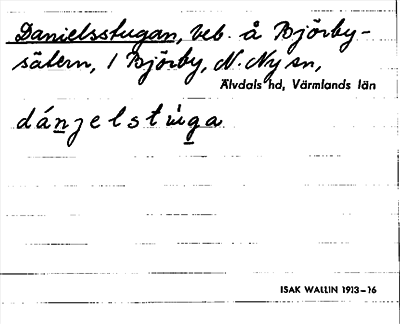 Danielsstugan, beb. å Björby-
sätern, 1 Björby, N. Ny sn,
Älvdals hd, Värmlands län
dánjelstúga
ISAK WALLIN 1913–16